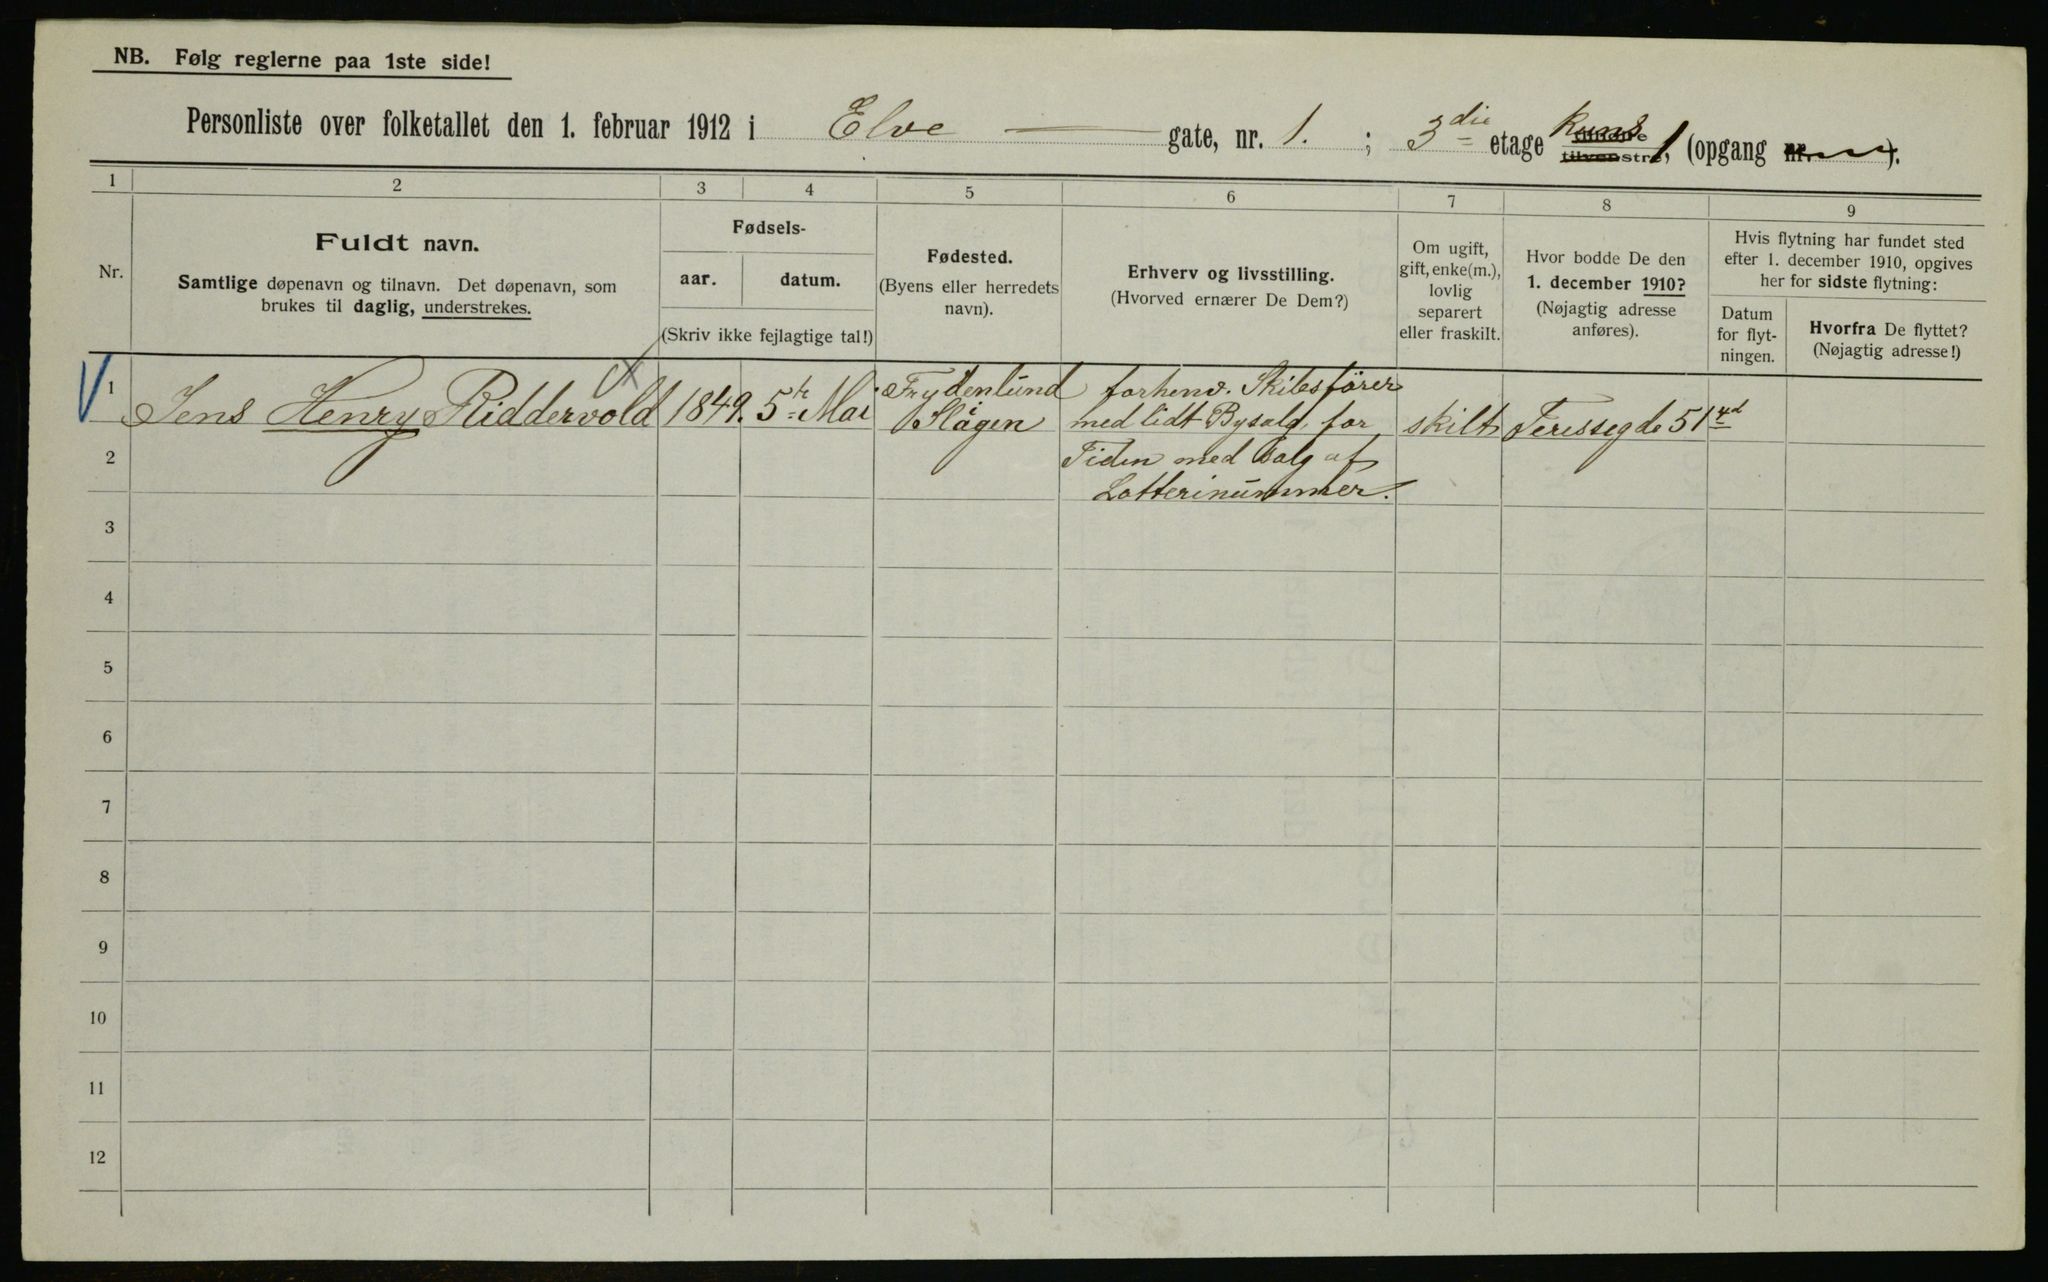 NB. Følg reglerne paa 1ste side!
Personliste over folketallet den 1. februar 1912 i Elve gate, nr. 1. ; 3die etage kuns 1 (opgang nr. ).
1 2 3 4 5 6 7 8 9
Nr.
Fuldt navn.
Samtlige døpenavn og tilnavn. Det døpenavn, som
brukes til daglig, understrekes.
Fødsels-
aar. datum.
(Skriv ikke fejlagtige tal!)
Fødested.
(Byens eller herredets
navn).
Erhverv og livsstilling.
(Hvorved ernærer De Dem?)
Om ugift,
gift, enke(m.),
lovlig
separert
eller fraskilt.
Hvor bodde De den
1. december 1910?
(Nøjagtig adresse
anføres).
Hvis flytning har fundet sted
efter 1. december 1910, opgives
her for sidste flytning:
Datum
for flyt-
ningen.
Hvorfra De flyttet?
(Nøjagtig adresse!)
1 Jens Henry Riddervold 1849. 5te Mai
Frydenlund
Slågen
forhenv. Skibsfører
med lidt Bysalg, for
Tiden med Salg af
Lotterinummer.
skilt
51
2
3
4
5
6
7
8
9
10
11
12